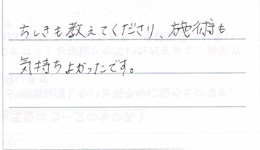 ちしきも教えてくださり、施術も
気持ちよかったです。